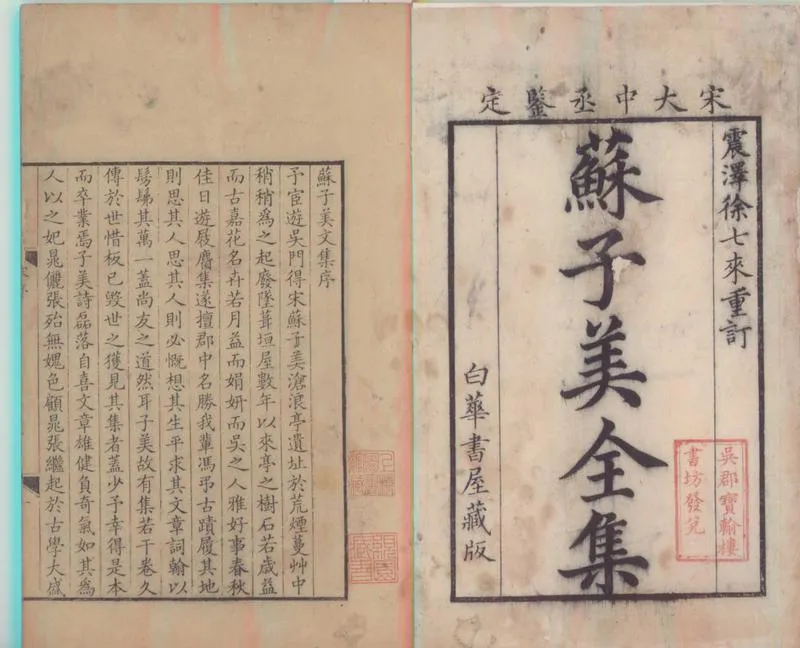 宋大中丞鑒定
震澤徐七來重訂
蘇子美全集
白華書屋藏版
吳郡寶翰樓
書坊發兌
蘇子美文集序
予宦遊吳門得宋蘇子美滄浪亭遺址於荒煙蔓艸中
稍稍爲之起廢墜葺垣屋數年以來亭之樹石若歲益
而古嘉花名卉若月益而娟妍而吳之人雅好事春秋
佳日遊屐麕集遂擅郡中名勝我輩馮弔古蹟履其地
則思其人思其人則必慨想其生平求其文章詞翰以
髣髴其萬一蓋尚友之道然耳子美故有集若干卷久
傳於世惜板已毀世之獲見其集者蓋少予幸得是本
而卒業焉子美詩磊落自喜文章雄健負奇氣如其爲
人以之妃晁儷張殆無媿色顧晁張繼起於古學大盛